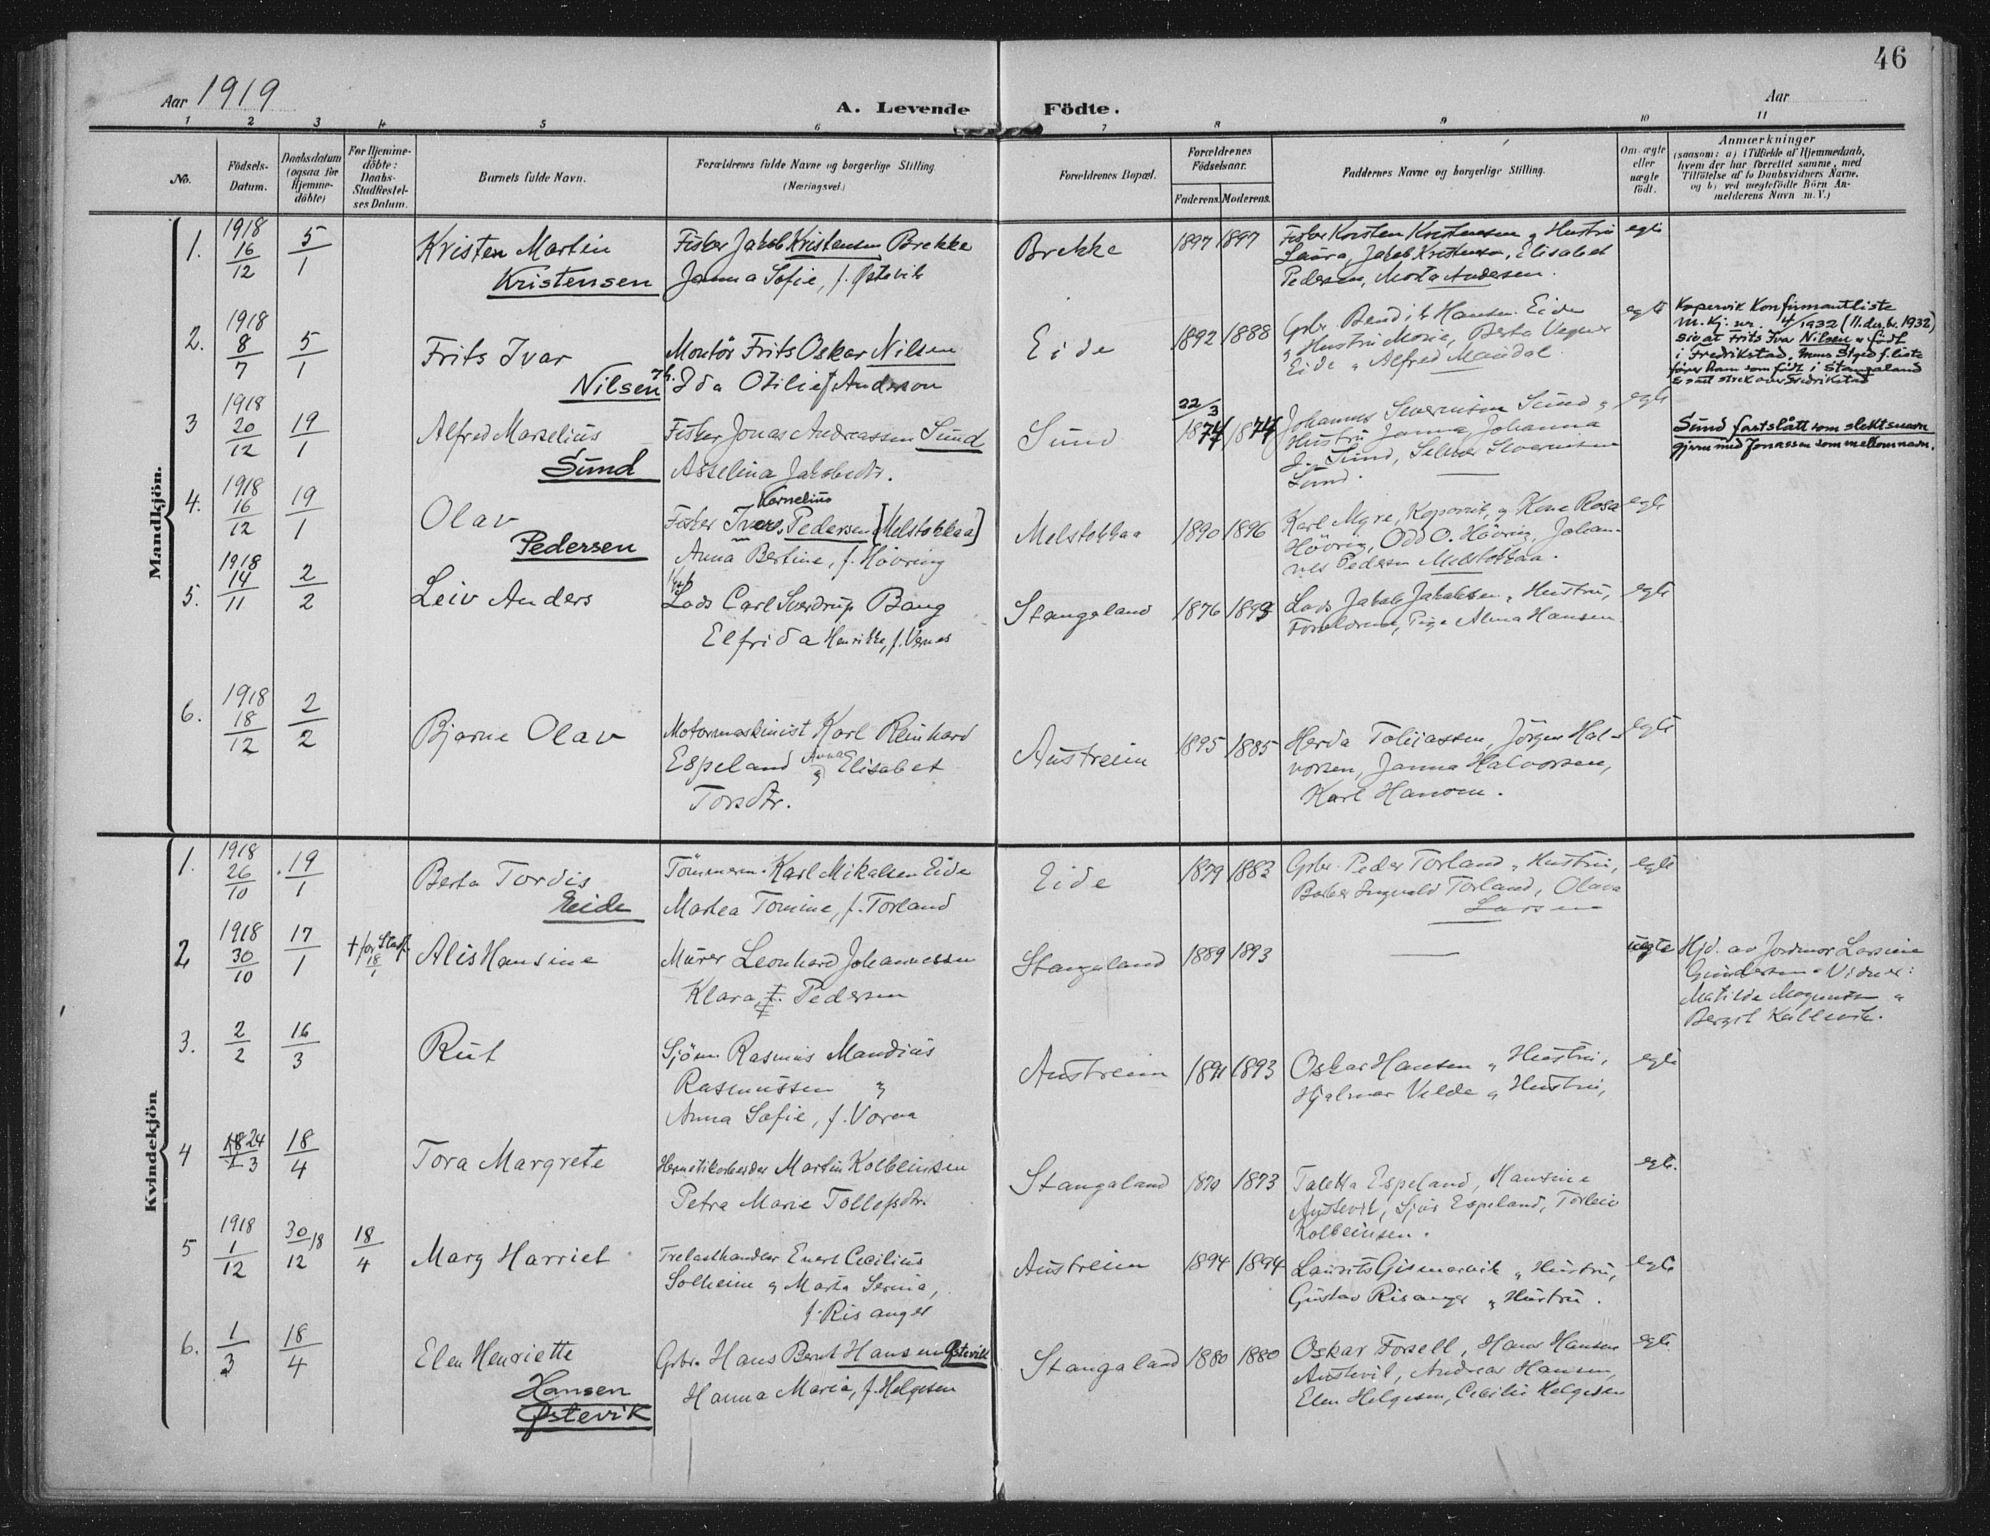 46
Aar 1919
A. Levende Födte.
Aar
1 2 3 4 5 6 7 8 9 10 11
No.
Födsels-
Datum.
Daabsdatum
(ogsaa for
Hjemme-
döbte)
For Hjemme-
döbte:
Daabs-
Stadfæstel-
ses Datum.
Barnets fulde Navn.
Forældrenes fulde Navne og borgerlige Stilling.
(Næringsvei.)
Forældrenes Bopæl.
Forældrenes
Födselsaar.
Faderens. Moderens.
Faddernes Navne og borgerlige Stilling.
Om ægte
eller
uægte
födt.
Anmærkninger
(saasom: a) i Tilfælde af Hjemmedaab,
hvem der har forrettet samme, med
Tilföielse af to Daabsvidners Navne.
og b) ved uægtefödte Börn An-
melderens Navn m. V.)
Mandkjön.
1.
1918
16/12
5/1
Kristen Martin
Kristensen
Fisker Jakob Kristensen Brekke
Janna Sofie, f. Østevik
Brekke
1897 1897
Fisker Kristen Kristensen og Hustru
Laura, Jakob Kristensen, Elisabet
Pedersen, Marta Andersen.
egte
2.
1918
8/7
5/1
Frits Ivar
Nilsen
Montör Frits Oskar Nilsen
Ida Otilie f. Anderson
Eide
1892 1888
Gbr. Bendik Hansen Eide
og Hustru Marie, Berta Vegner
Eide og Alfred Mandal.
egte
Kopervik Konfirmantliste
M. Kj. nr. 4/1932 (11. des. br. 1932)
sier at Frits Ivar Nilsen er födt
i Fredrikstad, mens
förer ham som födt i Stangaland
strek over Fredrikstad
3
1918
20/12
19/1
Alfred Marselius
Sund
Fisker Jonas Andreassen Sund
Asselina Jakobsdtr.
Sund
22/3
1874 1874
Johannes Severinsen Sund og
Hustru Janna, Johanna
J. Sund, Selmer Severinsen
Sund.
egte
Sund fastslått som slektsnavn
gjerne med Jonassen som mellomnavn.
4.
1918
16/12
19/1
Olav
Pedersen
Kornelius
Fisker Ivers Pedersen [Melstokkaa]
Anna Bertine, f. Hövring
Melstokkaa
1890 1896
Karl Myre, Kopervik, og Kone Rosa
Hövring, Odd O. Hövring, Johan-
nes Pedersen Melstokkaa.
egte
5.
1918
14/11
2/2
Leiv Anders
Lods Carl Sverdrup Bang
Elfrida Henrikke, f. Vernes
Stangaland
1876 1893
Lods Jakob Jakobsen og Hustru,
Forældrene, Pige Alma Hansen
egte
6.
1918
18/12
2/2
Bjarne Olav
Motormaskinist Karl Reinhard
Espeland og Anna Elisabet
Torsdtr.
Austreim
1895 1885
Herda Tobiassen, Jörgen Hal-
vorsen, Janna Halvorsen,
Karl Hansen.
egte
Kvindekjön
1.
1918
26/10
19/1
Berta Tordis
Eide
Tömmerm. Karl Mikalsen Eide
Martea Tomine, f. Torland
Eide
1879 1883
Gbr. Peder Torland og Hustru,
Baker Ingvald Torland, Olava
Larsen
egte
2
1918
30/10
17/1
† for Stadf.
18/1
Alis Hansine
Murer Leonhard Johannessen
Klara, f. Pedersen
Stangaland
1889 1893
uegte
Hjd. av Jordmor Larsine
Gundersen. Vidner:
Matilde Mogensen og
Bergit Kallevik.
3.
2/2
16/3
Rut
Sjöm. Rasmus Mandius
Rasmussen og
Anna Sofie, f. Vorra
Austreim
1891 1893
Oskar Hansen og Hustru,
Hjalmar Velde og Hustru,
egte
4
24/3
18/4
Tora Margrete
Hermetikarbeider Martin Kolbeinsen
Petra Marie Tollefsdtr.
Stangaland
1870 1873
Taletta Espeland, Hansine
Austevik, Sjur Espeland, Torleiv
Kolbeinsen.
egte.
5
1918
1/12
30/12 18
18/4
Mary Harriet
Trelasthandler Enert Cecilius
Solheim og Marta Serina,
f. Risanger
Austreim
1894 1894
Laurits Gismarvik og Hustru,
Gustav Risanger og Hustru.
egte
6.
1/3
18/4
Elen Henriette
Hansen
Østevik
Gbr. Hans Bernt Hansen Østevik
Hanna Maria, f. Helgesen
Stangaland
1880 1880
Oskar Forsell, Hans Hansen
Austevik, Andreas Hansen,
Elen Helgesen, Cecilie Helgesen
egte